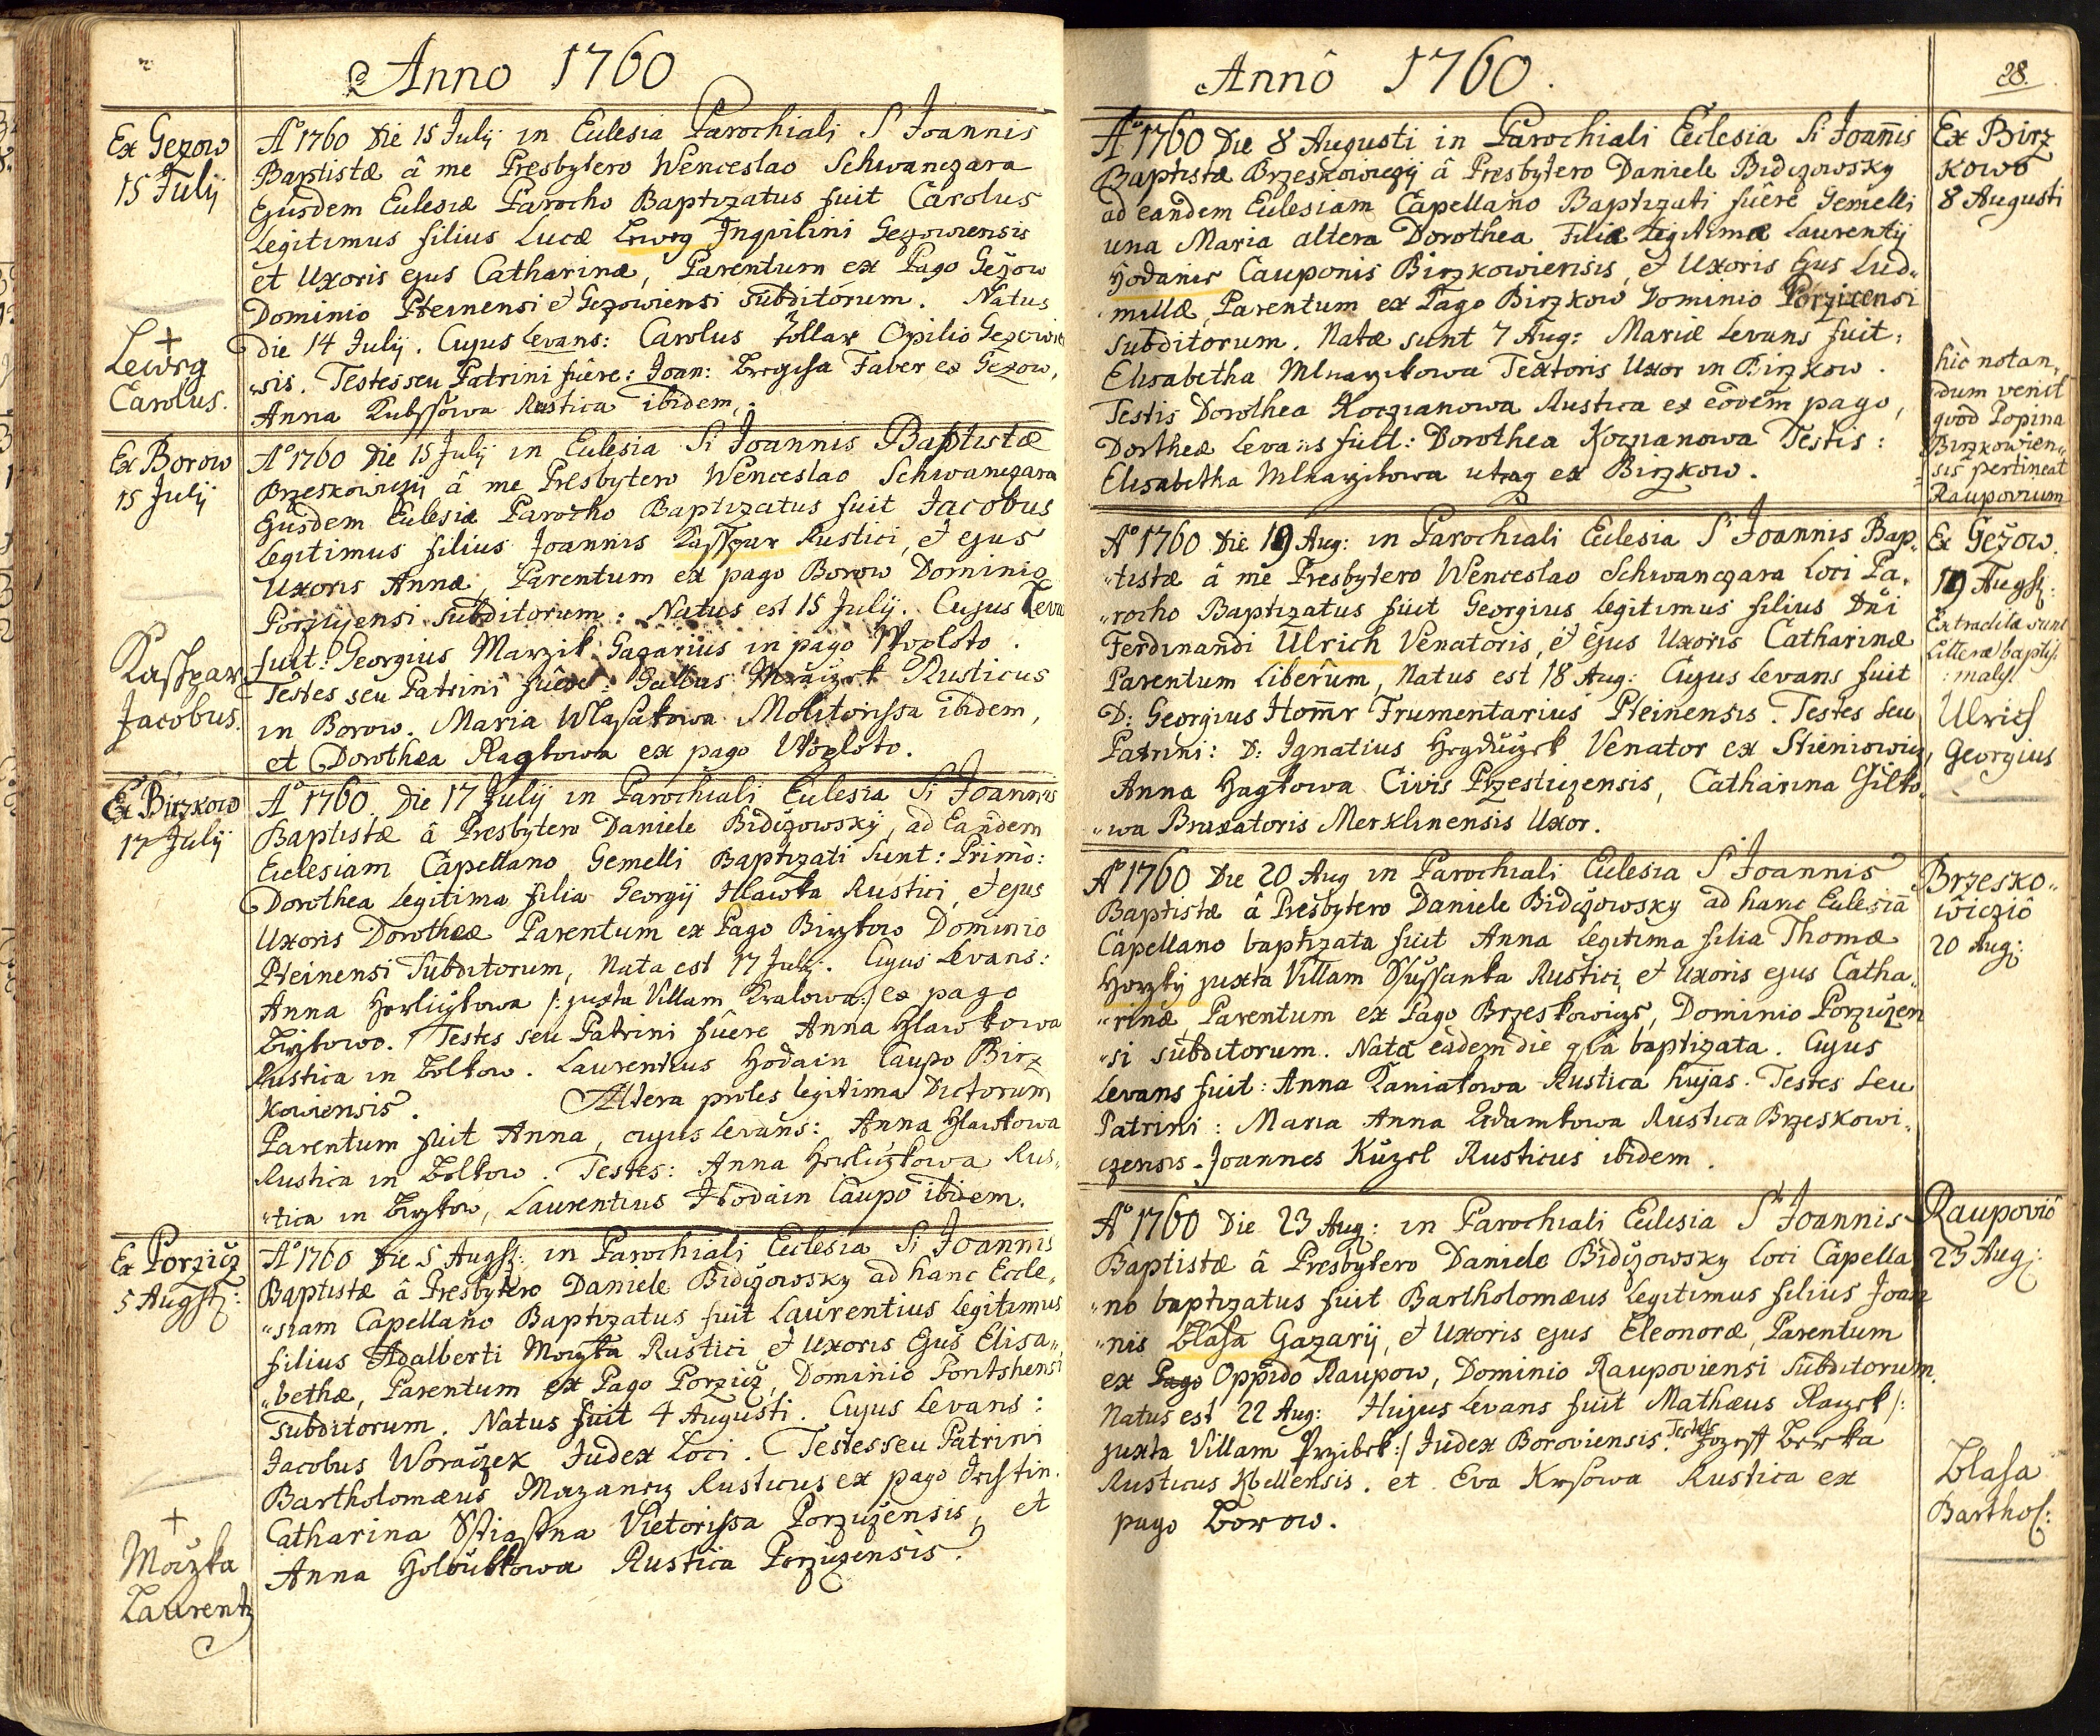 Anno 1760
Ex Gezow
15 Julij
Aº 1760 Die 15 Julij in Eclesia Parochiali S Joannis
Baptistæ â me Presbytero Wenceslao Schwanczara
Ejusdem Eclesiæ Parocho Baptizatus fuit Carolus
Legitimus filius Lucæ Inqvilini Gezowiensis
et Uxoris ejus Catharinæ, Parentum ex Pago Gežow
Dominio Pteinensi et Gezowiensi subditorum. Natus
die 14 Julij. Cujus Levans: Carolus Zollar Opilio
sis. Testes seu Patrini fuêre: Joan: Faber ex Gezow,
Anna Rustica ibidem.
+
Lewrg
Carolus.
Ex Borow
15 Julij
Aº 1760 Die 15 Julij in Eclesia Si Joannis Baptistæ
Brzeskowiczij â me Presbytero Wenceslao Schwanczara
Ejusdem Eclesiæ Parocho Baptizatus fuit Jacobus
Legitimus filius Joannis Kasspar Rustici, et ejus
Uxoris Annæ, Parentum ex pago Borow Dominio
subditorum: Natus est 15 Julij. Cujus Leva
fuit: Georgius Marzik Gazarius in pago Woploto.
Testes seu Patrini fuêre: Gallus Rusticus
in Borow. Maria Wlasakowa Molitorissa ibidem,
et Dorothea ex pago Woploto.
Kasspar
Jacobus.
Ex Birzkow
17 Julij
Aº 1760. Die 17 Julij in Parochiali Eclesia Si Joannis
Baptistæ â Presbytero Daniele Bidczowsky, ad Eandem
Eclesiam Capellano Gemelli Baptizati sunt: Primò:
Dorothea Legitima filia Georgij Hlawka Rustici, et ejus
Uxoris Dorotheæ Parentum ex Pago Birzkow Dominio
Pteinensi Subditorum, Nata est 17 Julij. Cujus Levans:
Anna /: juxta Villam Kralowa:/ ex pago
Birzkowo. Testes seu Patrini fuêre Anna Hlawkowa
Rustica in Bolkow. Laurentius Hodain Caupo Birz
kowiensis. Altera proles legitima Dictorum
Parentum fuit Anna, cujus Levans: Anna Hlawkowa
Rustica in Bolkow. Testes: Anna Rus„
„tica in Birzkow, Laurentius Hodain Caupo ibidem.
Ex Porzicz
5 Augst:
Aº 1760 Die 5 Augst: in Parochiali Eclesia Si Joannis
Baptistæ â Presbytero Daniele Bidczowsky ad hanc Eccle„
„siam Capellano Baptizatus fuit Laurentius Legitimus
filius Adalberti Moczka Rustici et Uxoris Ejus Elisa„
„bethæ, Parentum ex Pago Porzicz, Dominio
subditorum. Natus fuit 4 Augusti. Cujus Levans:
Jacobus Woraczek Judex Loci. Testes seu Patrini
Bartholomæus Rusticus ex pago
Catharina Stiastna Vietorissa Porziczensis, et
Anna Holoubkowa Rustica Porziczensis.
+
Moczka
Laurentz
Anno 1760.
28.
Aº 1760 Die 8 Augusti in Parochiali Eclesia Si Joannis
Baptistæ Brzeskowiczij â Presbytero Daniele Bidczowsky
ad eandem Eclesiam Capellano Baptizati fuêre Gemelli
una Maria altera Dorothea Filiæ Legitimæ Laurentij
Cauponis Birzkowiensis, et Uxoris Ejus Lud„
millæ, Parentum ex Pago Birzkow Dominio Porzicensi
subditorum. Natæ sunt 7 Aug: Mariæ Levans fuit:
Elisabetha Textoris Uxor in Birzkow.
Testis Dorothea Koczianowa Rustica ex eodem pago,
Dortheæ Levans fuit: Dorothea Testis:
Elisabetha ex Birzkow.
Ex Birz
kowo
8 Augusti
hic notan„
dum venit
quod Popina
Birzkowien„
sis pertineat
Raupovium
Aº 1760 Die 19 Aug: in Parochiali Eclesia S Joannis Bap„
„tistæ â me Presbytero Wenceslao Schwanczara Loci Pa„
„rocho Baptizatus fuit Georgius Legitimus filius Dni
Ferdinandi Ulrich Venatoris, et ejus Uxoris Catharinæ
Parentum Liberûm, Natus est 18 Aug: Cujus Levans fuit
D: Georgius Frumentarius Pteinensis. Testes seu
Patrini: D: Ignatius Venator ex
Anna Civis Przesticzensis, Catharina
„wa Braxatoris Merklinensis Uxor.
Ex Gežow.
19 Augst:
Extraditæ sunt
Litteræ baptis
:males
Ulrich
Georgius
Aº 1760 Die 20 Aug in Parochiali Eclesia S Joannis
Baptistæ â Presbytero Daniele Bidczowsky ad hanc Eclesiã
Capellano baptizata fuit Anna Legitima filia Thomæ
juxta Villam Rustici, et Uxoris ejus Catha„
„rinæ, Parentum ex Pago Brzeskowicze, Dominio Porziczen
„si subditorum. Nata eâdem die baptizata. Cujus
Levans fuit: Anna Kaniakowa Rustica hujas. Testes seu
Patrini: Maria Anna Adamkowa Rustica Brzeskowi„
czensis. Joannes Rusticus ibidem.
Brzesko„
wiczio
20 Aug:
Aº 1760 Die 23 Aug: in Parochiali Eclesia Sti Joannis
Baptistæ â Presbytero Daniele Bidczowsky Loci Capella
„no baptizatus fuit Bartholomæus Legitimus filius Joan
„nis Blasa Gazarij, et Uxoris ejus Eleonoræ, Parentum
ex Pago Oppido Raupow, Dominio Raupoviensi subditorum.
Natus est 22 Aug: Hujus Levans fuit Mathæus /:
juxta Villam Przibek:/ Judex Boroviensis. Testes
Rusticus et Eva Rustica ex
pago Borow.
Raupovio
23 Aug:
Blasa
Barthol: